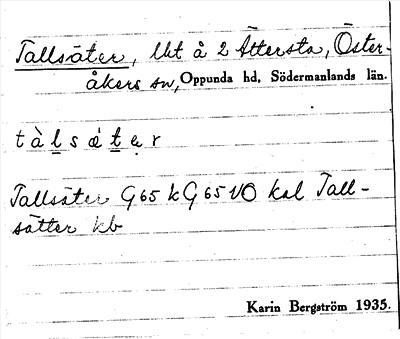 Tallsäter, lht å 2 Ättersta, Öster-
åkers sn, Oppunda hd, Södermanlands län.
t à l s ä́ t e r
Tallsäter G 65 k G 65 VO kal Tall-
sätter kb
Karin Bergström 1935.